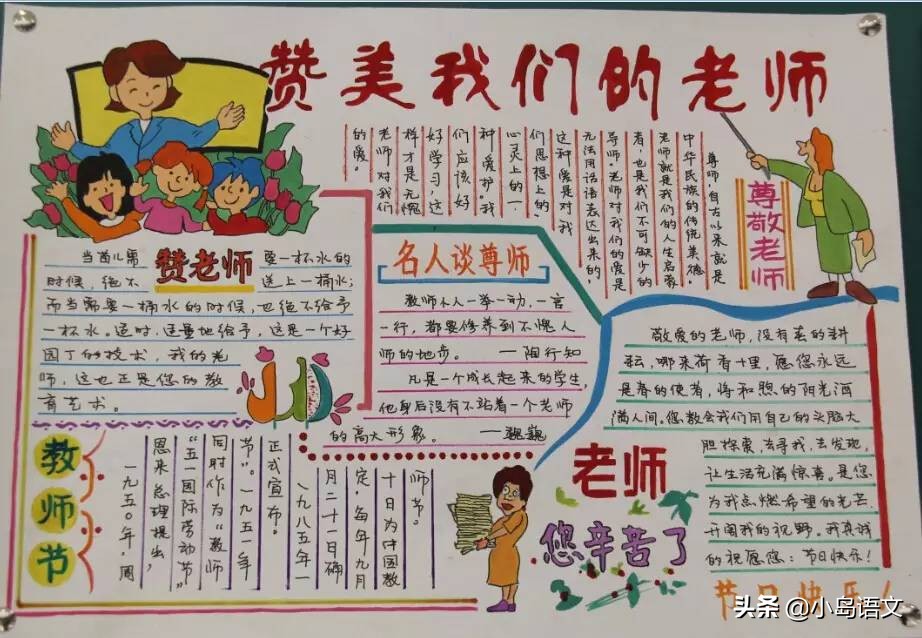 赞美我们的老师
尊敬老师
尊师，自古以来就是
中华民族的传统美德。
老师就是我们的人生启蒙
者，也是我们不可缺少的
导师。老师对我们的爱是
无法用话语表达出来的，
这种爱是对我
们思想上的、
心灵上的一
种爱护。我
们应该好
好学习，这
样才是无愧
老师对我们
的爱。
赞老师
当苗儿需要一杯水的
时候，绝不送上一桶水；
而当需要一桶水的时候，也绝不给予
一杯水。适时，适量地给予，这是一个好
园丁的技术，我的老
师，这也正是您的教
育艺术。
名人谈尊师
教师个人一举一动，一言
一行，都要修养到不愧人
师的地步。 ——陶行知
凡是一个成长起来的学生，
他身后没有不站着一个老师
的高大形象。 ——魏巍
敬爱的老师，没有春的耕
耘，哪来荷香十里，愿您永远
是春的使者，将和煦的阳光洒
满人间。您教会我们用自己的头脑大
胆探索，去寻找，去发现，
让生活充满惊喜。是您
为我点燃希望的光芒，
开阔我的视野。我真诚
的祝愿您：节日快乐！
教师节
一九五〇年，周
恩来总理提出，
“五一国际劳动节”
同时作为“教师
节”。一九五一年
正式宣布。
一九八五年一
月二十一日确
定，每年九月
十日为中国教
师节。
老师
您辛苦了
节日快乐！
头条 @小岛语文